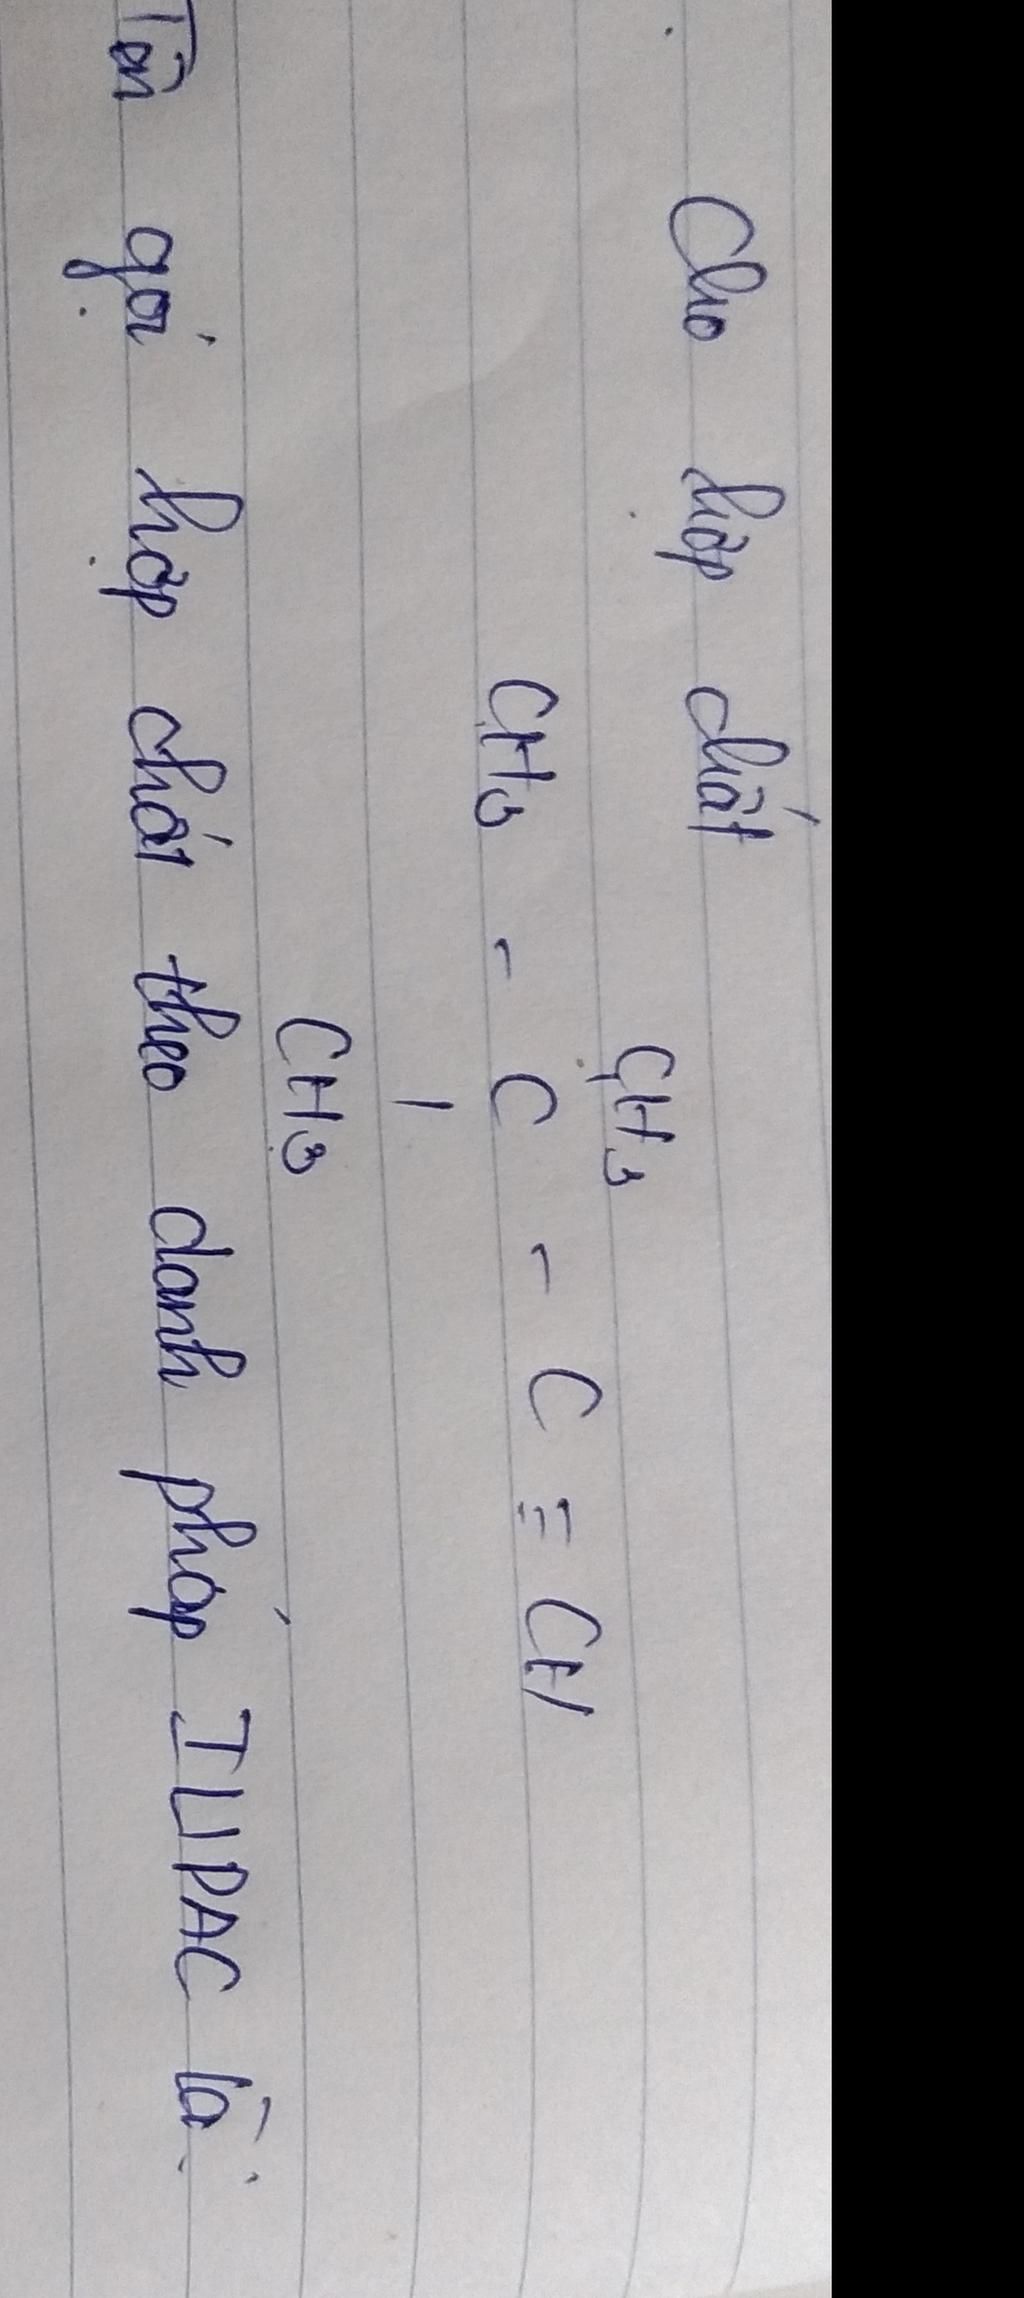 Cho hợp chất
CH3
CH3 - C - C ≡ CH
|
CH3
Tên gọi hợp chất theo danh pháp IUPAC là: